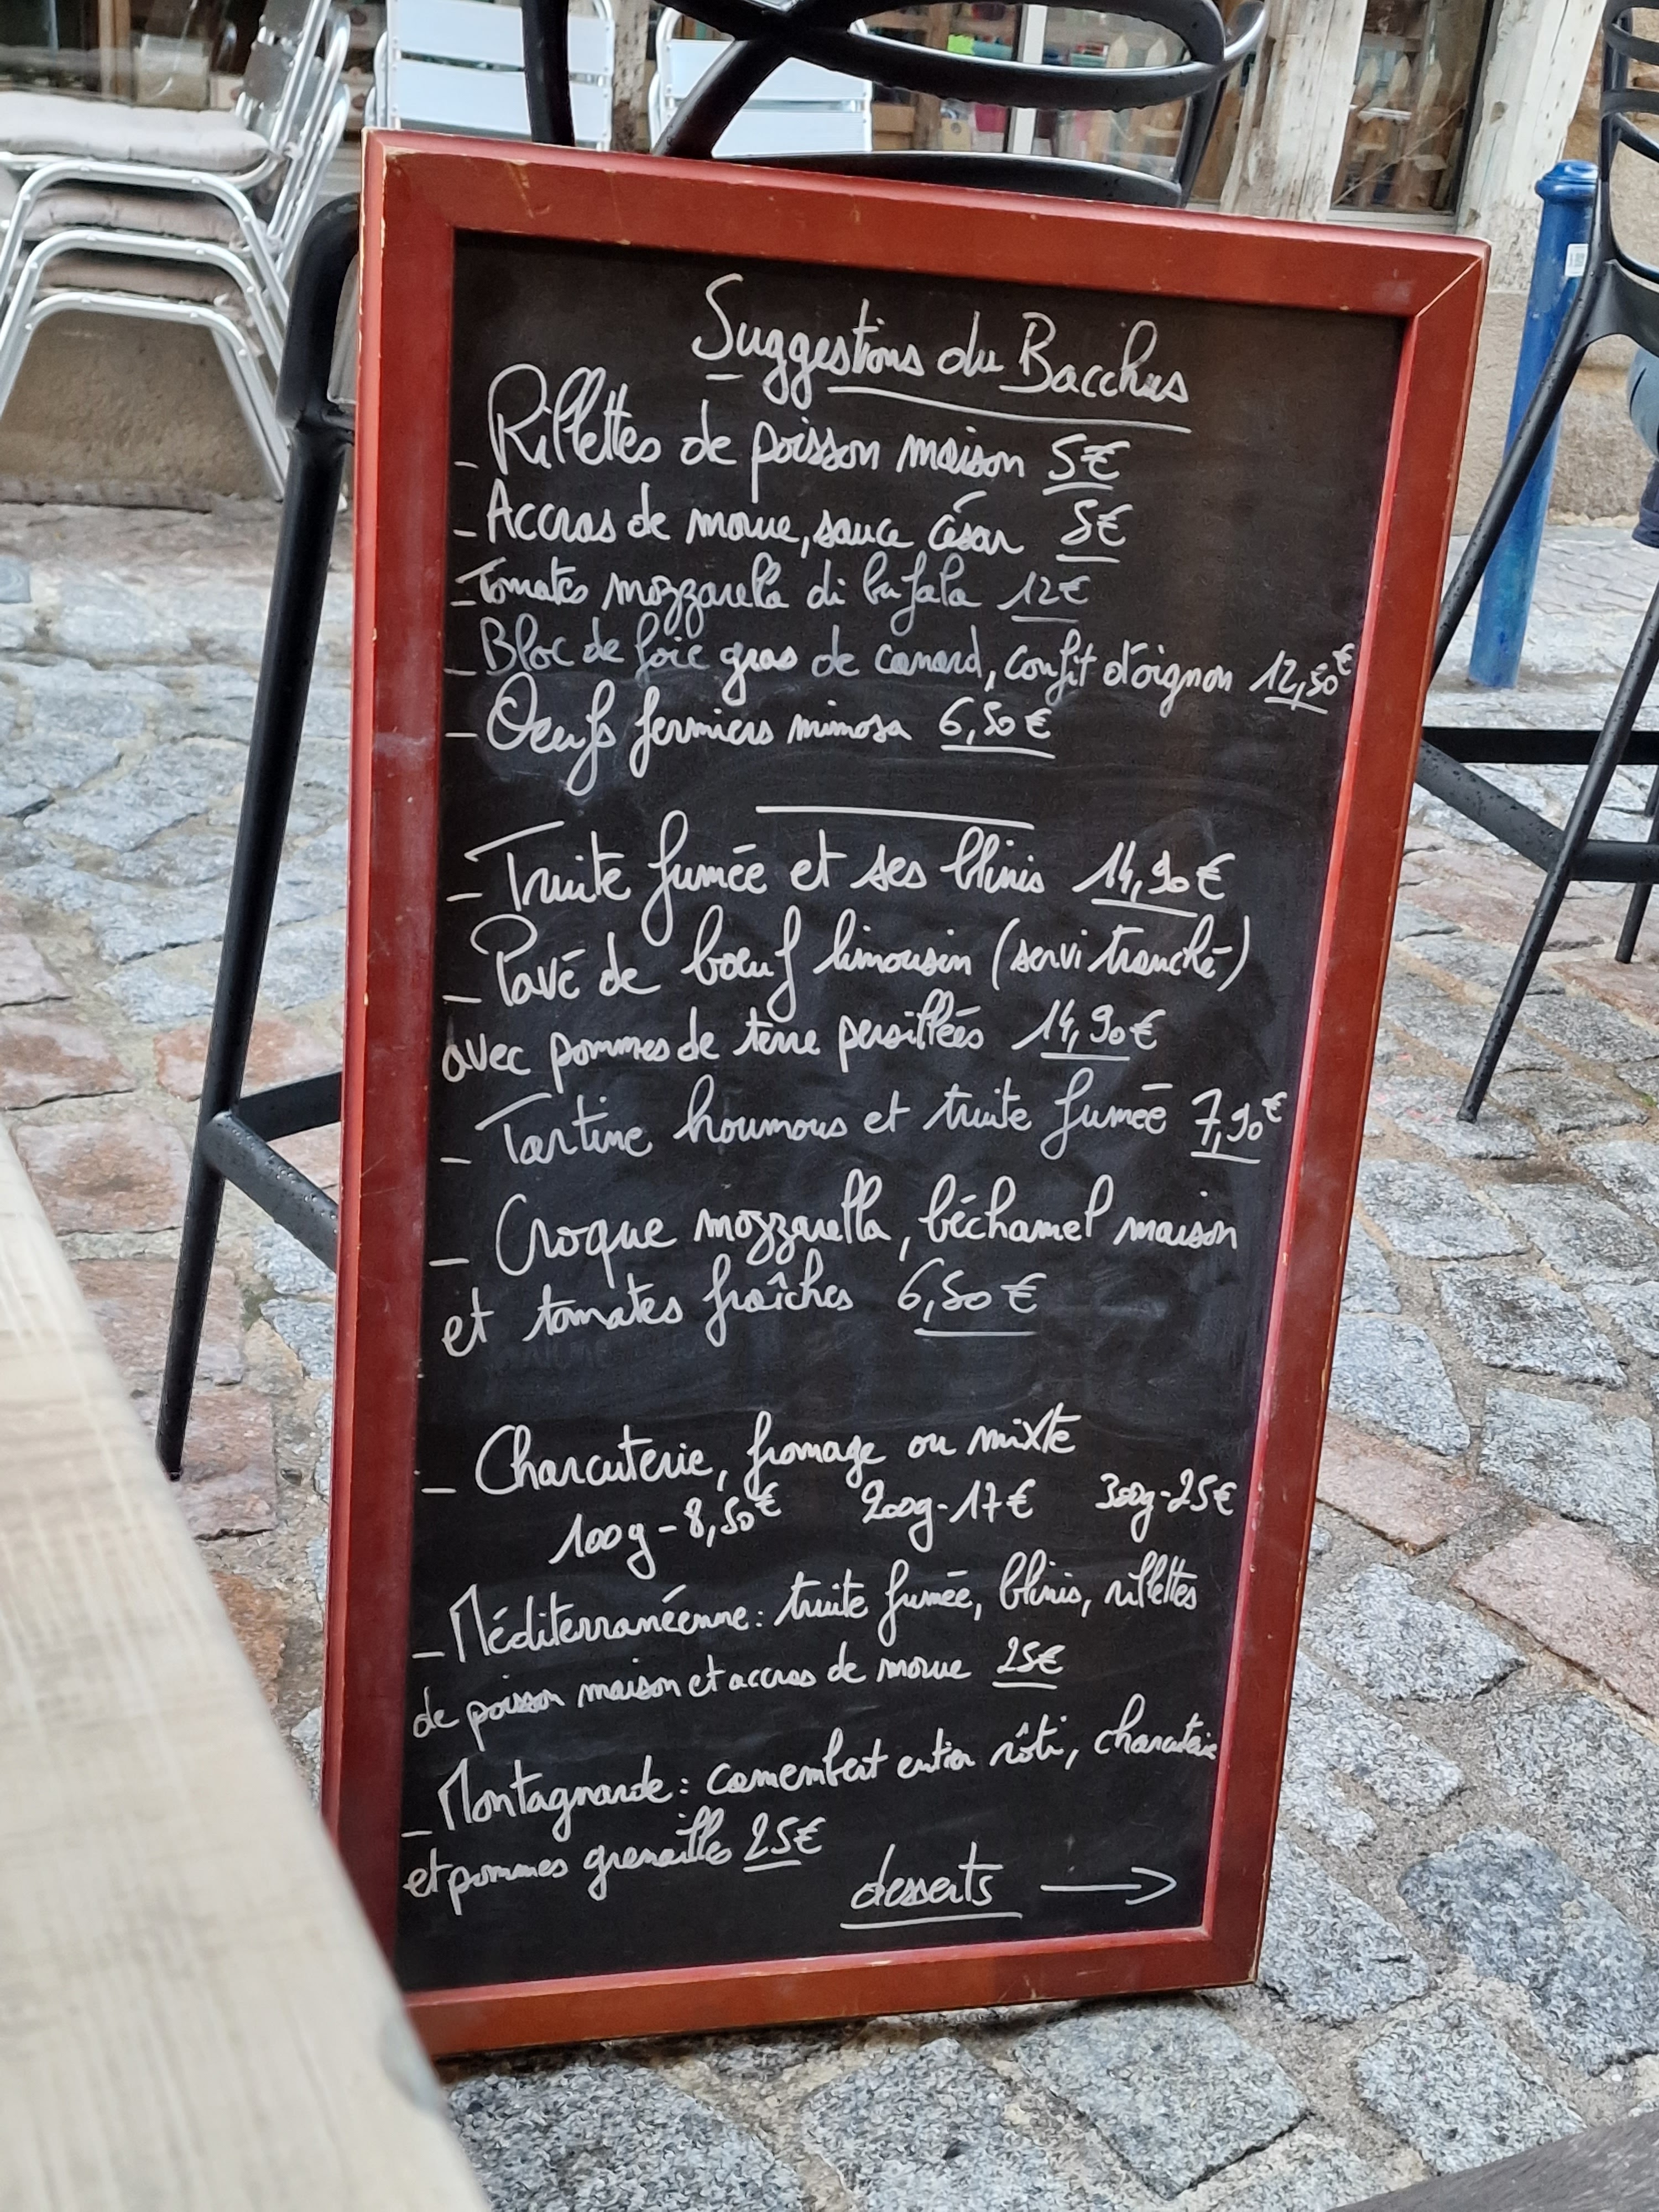 Suggestions du Bacchus
- Rillettes de poisson maison 5€
- Accras de morue, sauce césar 8€
- Tomates mozzarella di bufala 12€
- Bloc de foie gras de canard, confit d'oignon 12,50€
- Oeufs fermiers mimosa 6,50€
- Truite fumée et ses blinis 14,90€
- Pavé de boeuf limousin (servi tranché)
avec pommes de terre persillées 14,90€
- Tartine houmous et truite fumée 7,90€
- Croque mozzarella, béchamel maison
et tomates fraîches 6,50€
- Charcuterie, fromage ou mixte
100g - 8,50€ 200g - 17€ 300g - 25€
- Méditerranéenne : truite fumée, blinis, rillettes
de poisson maison et accras de morue 25€
- Montagnarde : camembert entier rôti, charcuterie
et pommes grenailles 25€
desserts →